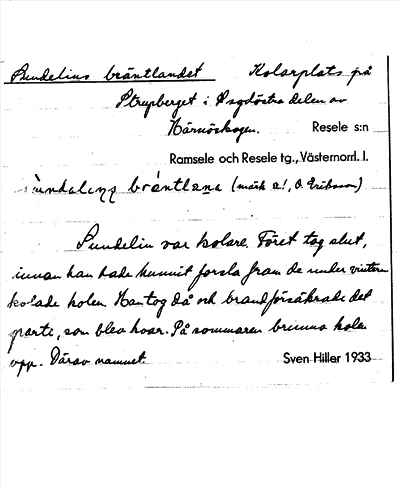 Sundelins bräntlandet Kolarplats på
Strupberget i sydöstra delen av
Härnöskogen. Resele s:n
Ramsele och Resele tg., Västernorrl. l.
bräntlana (märk a!, O. Eriksson)
Sundelin var kolare. Föret tog slut,
innan han hade hunnit forsla fram de under vintern
kolade kolen. Han tog då och brandförsäkrade det
parti, som blev kvar. På sommaren brunno kolen
upp. Därav namnet Sven Hiller 1933